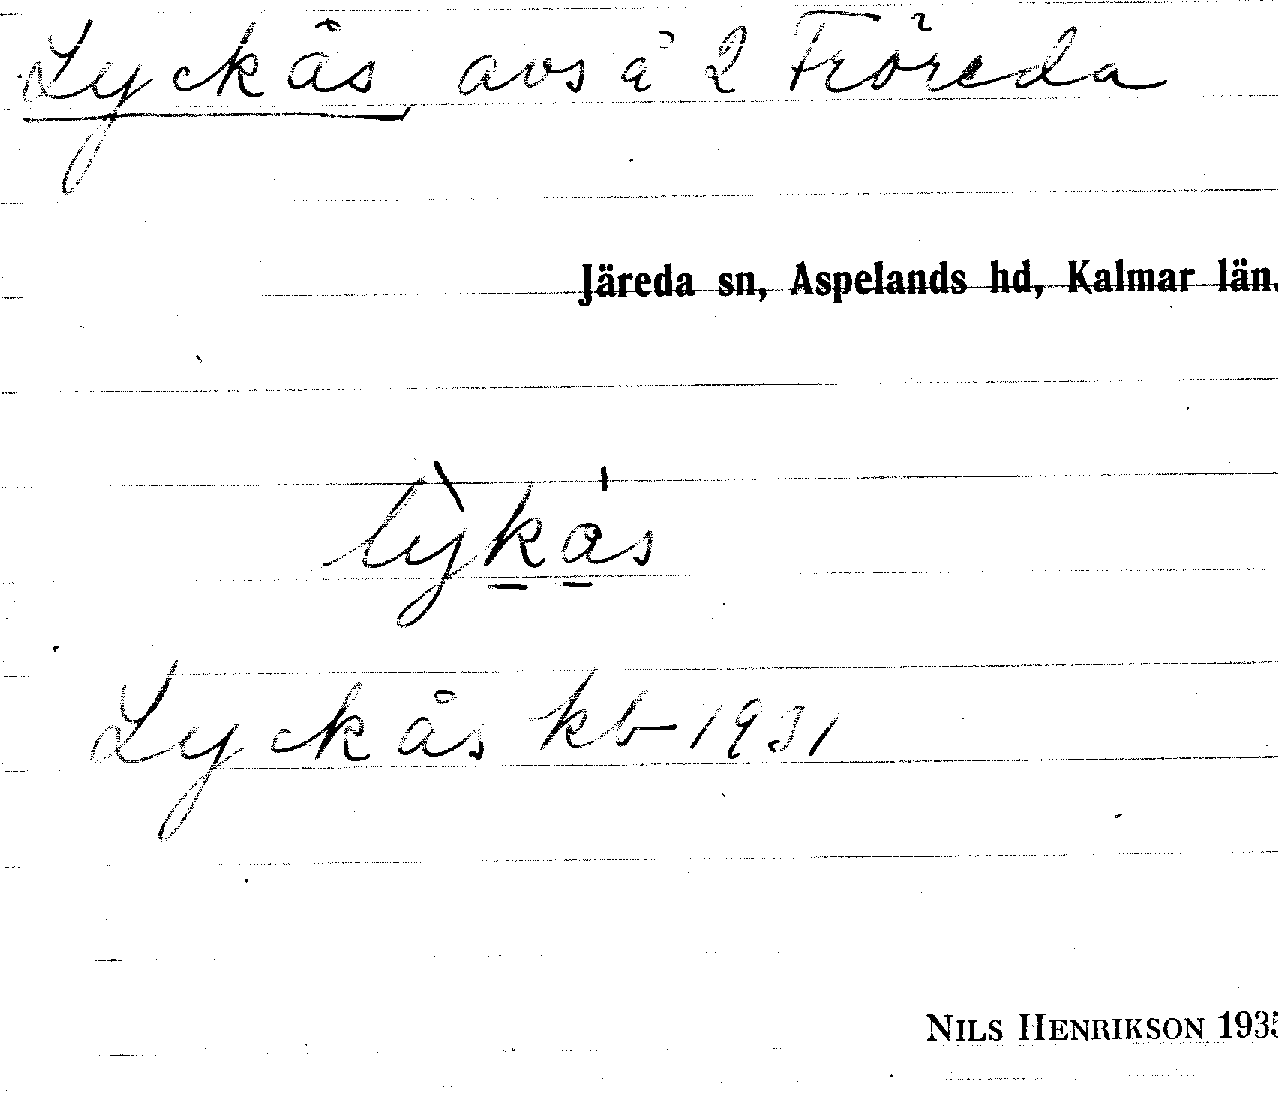 Lyckås, avs å 2 Fröreda
Järeda sn, Aspelands hd, Kalmar län.
lỳkås
Lyckås kb 1931
NILS HENRIKSON 1935